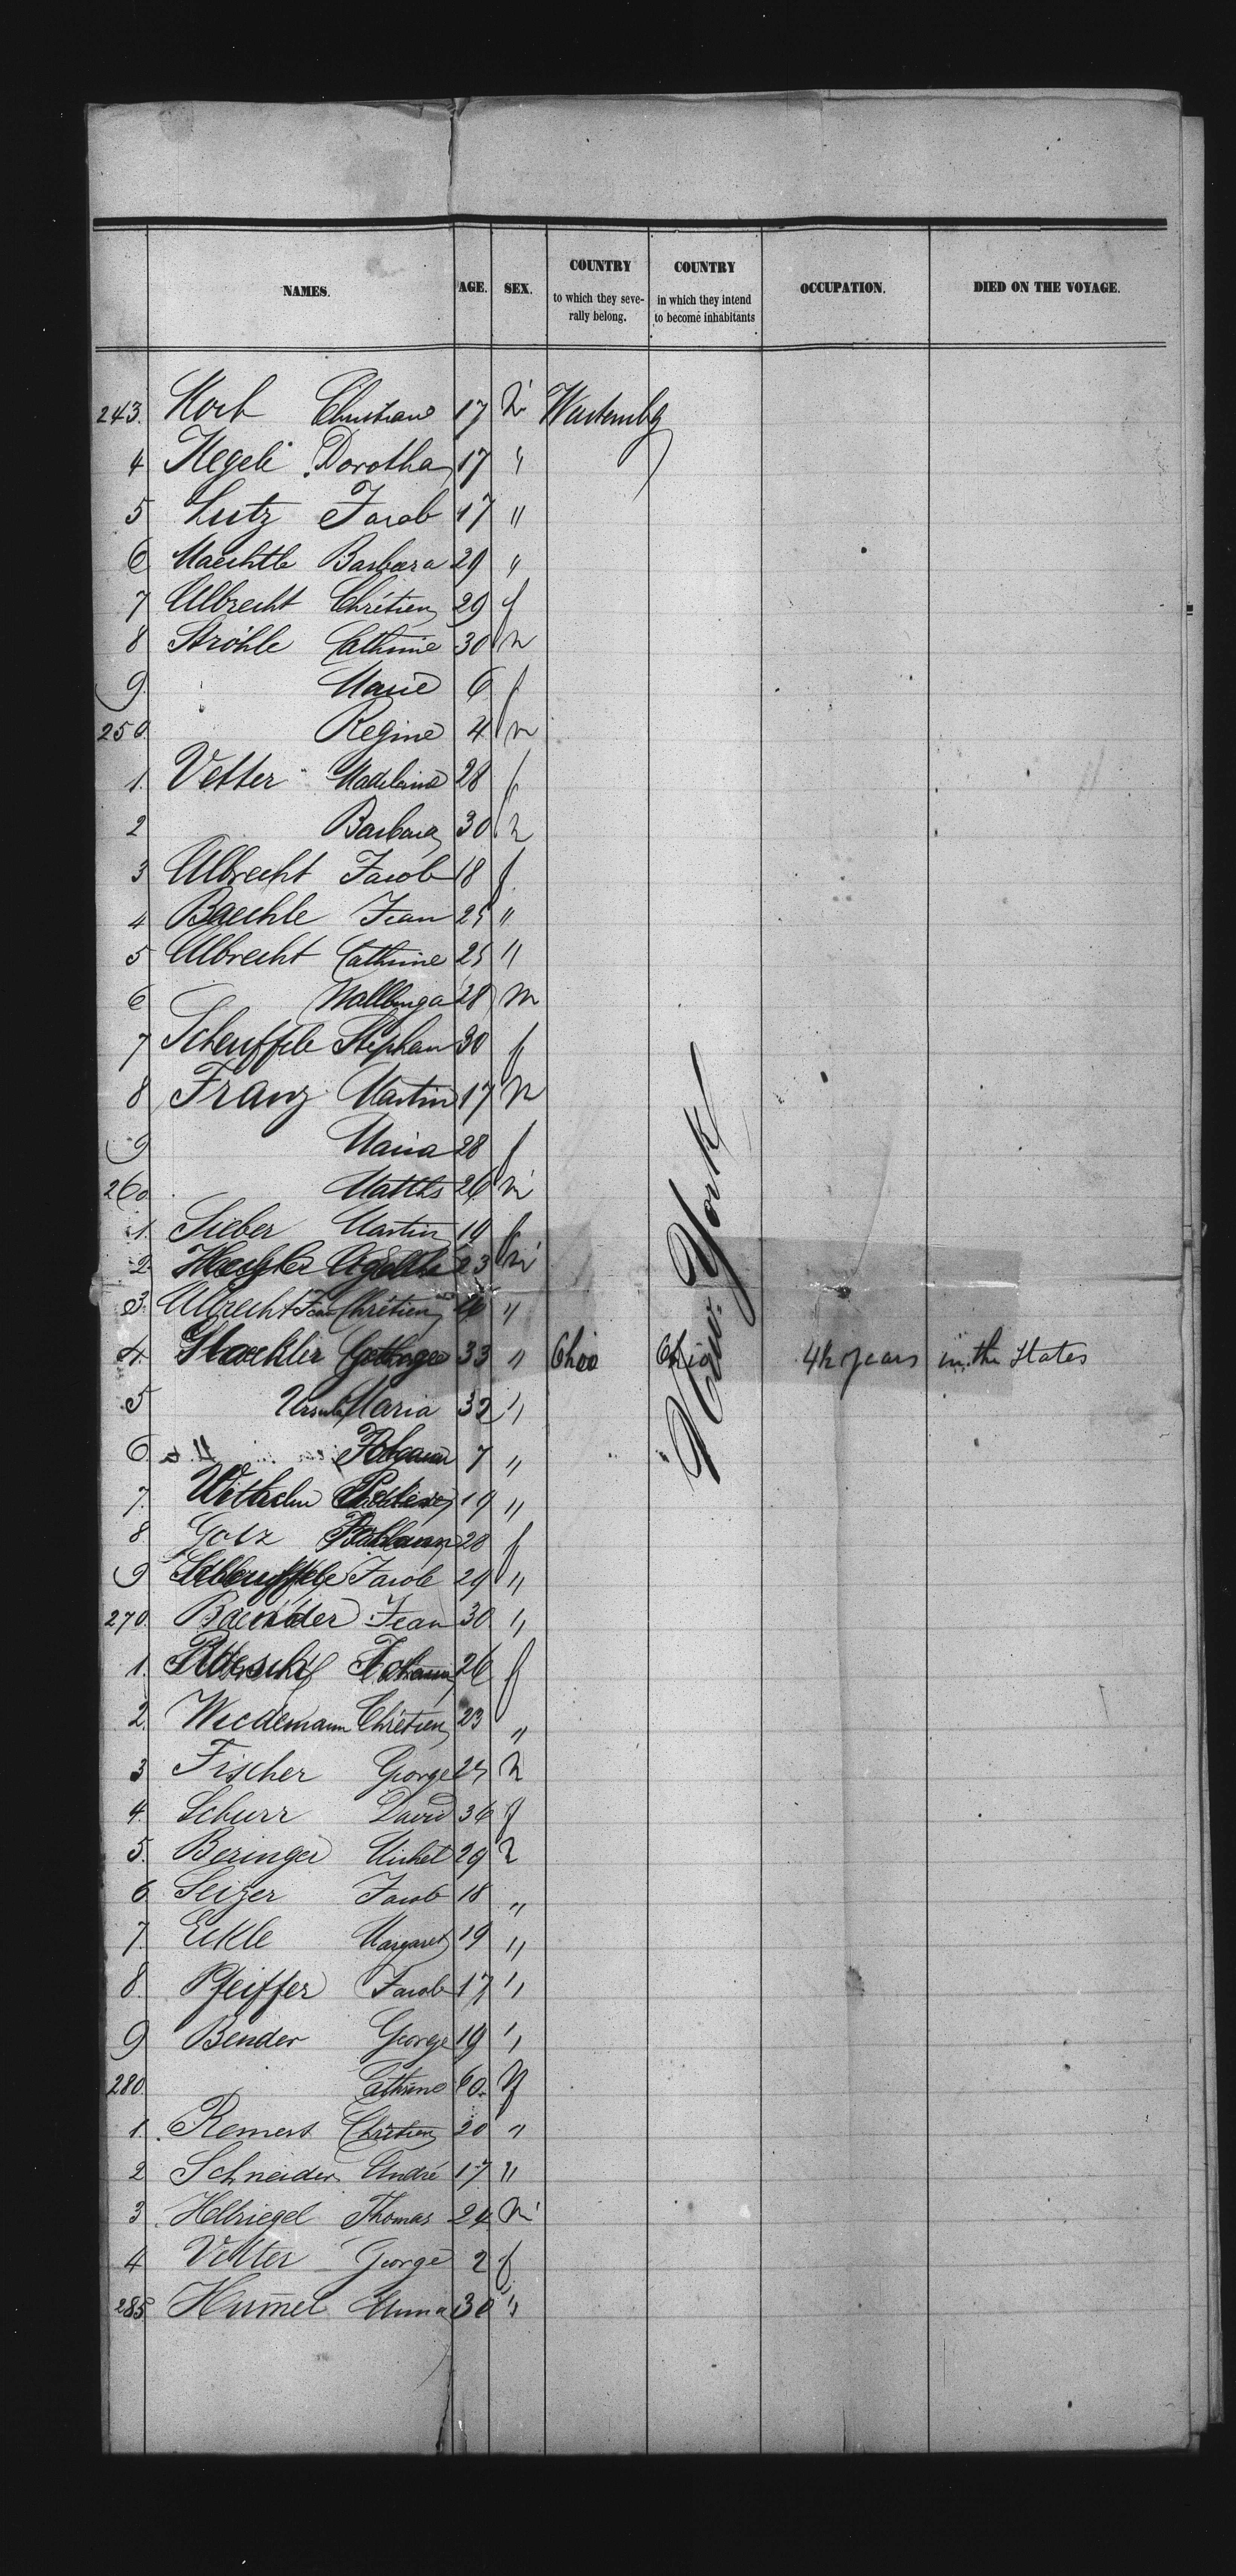 NAMES. AGE. SEX. COUNTRY to which they severally belong. COUNTRY in which they intend to become inhabitants OCCUPATION. DIED ON THE VOYAGE.
243. Koch Christiane 17 m Wurtembg
4 Hegele Dorothea 17 "
5 Lutz Jacob 17 "
6 Maechtle Barbara 29 "
7 Albrecht Chrétien 29 f
8 Ströhle Cathrine 30 m
9 Marie 6 f
250 Regine 4 m
1. Vetter Madelaine 28 f
2 Barbara 30 m
3 Albrecht Jacob 18 f
4 Baechle Jean 25 "
5 Albrecht Cathrine 25 "
6 Wallburga 28 m
7 Scheuffele Stephan 30 f
8 Franz Martin 17 m
9 Maria 28 f
260 Matths 26 m
1. Sieber Martin 19 f
2. Agatha 23 m
3. Albrecht Jean Chrétien "
4. 33 " Ohio Ohio 4½ years in the States
5 Ursula Maria 32 "
6. Johann 7 "
7. Wilhelm 19 "
8 Gotz 20 f
9 Jacob 29 "
270. Jean 30 "
1. Johann 26 f
2. Wiedemann Chrétien 23 "
3 Fischer George 25 m
4. Schurr David 36 f
5. Beringer Michel 29 m
6 Seizer Jacob 18 "
7. Eikle Margaret 19 "
8. Pfeiffer Jacob 17 "
9 Bender George 19 "
280. Cathrine 60. f
1. Remers Chrétien 20 "
2 Schneider André 17 "
3 Helbriegel Thomas 24 m
4 Vetter George 2 f
285 Hum̄el Anna 30 "
New-York